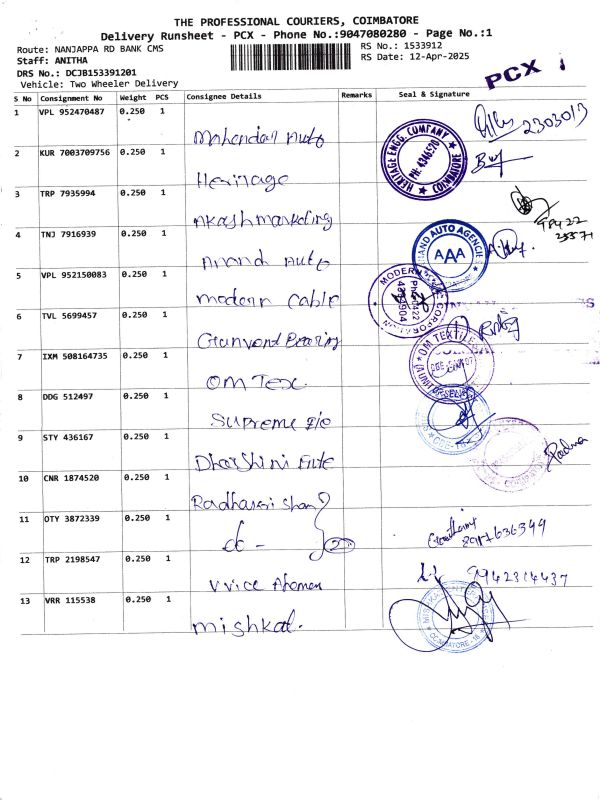 THE PROFESSIONAL COURIERS, COIMBATORE
Delivery Runsheet - PCX - Phone No.:9047080280 - Page No.:1
Route: NANJAPPA RD BANK CMS
RS No.: 1533912
Staff: ANITHA
RS Date: 12-Apr-2025
DRS No.: DCJB153391201
Vehicle: Two Wheeler Delivery
PCX
S No Consignment No Weight PCS Consignee Details Remarks Seal & Signature
1 VPL 952470487 0.250 1 Mahendar Auto 2303013
2 KUR 7003709756 0.250 1 Heritage
HERITAGE ENGG. COMPANY PH: 4346520 COIMBATORE
3 TRP 7935994 0.250 1 Akash marketing
4 TNJ 7916939 0.250 1 Anand Auto
ANAND AUTO AGENCIES AAA
5 VPL 952150083 0.250 1 modern Cable
MODERN CORPORATION
6 TVL 5699457 0.250 1 Gunvond Bearing
7 IXM 508164735 0.250 1 OM Tex
OM TEXTILES
8 DDG 512497 0.250 1 Supreme
9 STY 436167 0.250 1 Dharshini
Padma
10 CNR 1874520 0.250 1
11 OTY 3872339 0.250 1
12 TRP 2198547 0.250 1
9942314437
13 VRR 115538 0.250 1 mishkal.
COIMBATORE